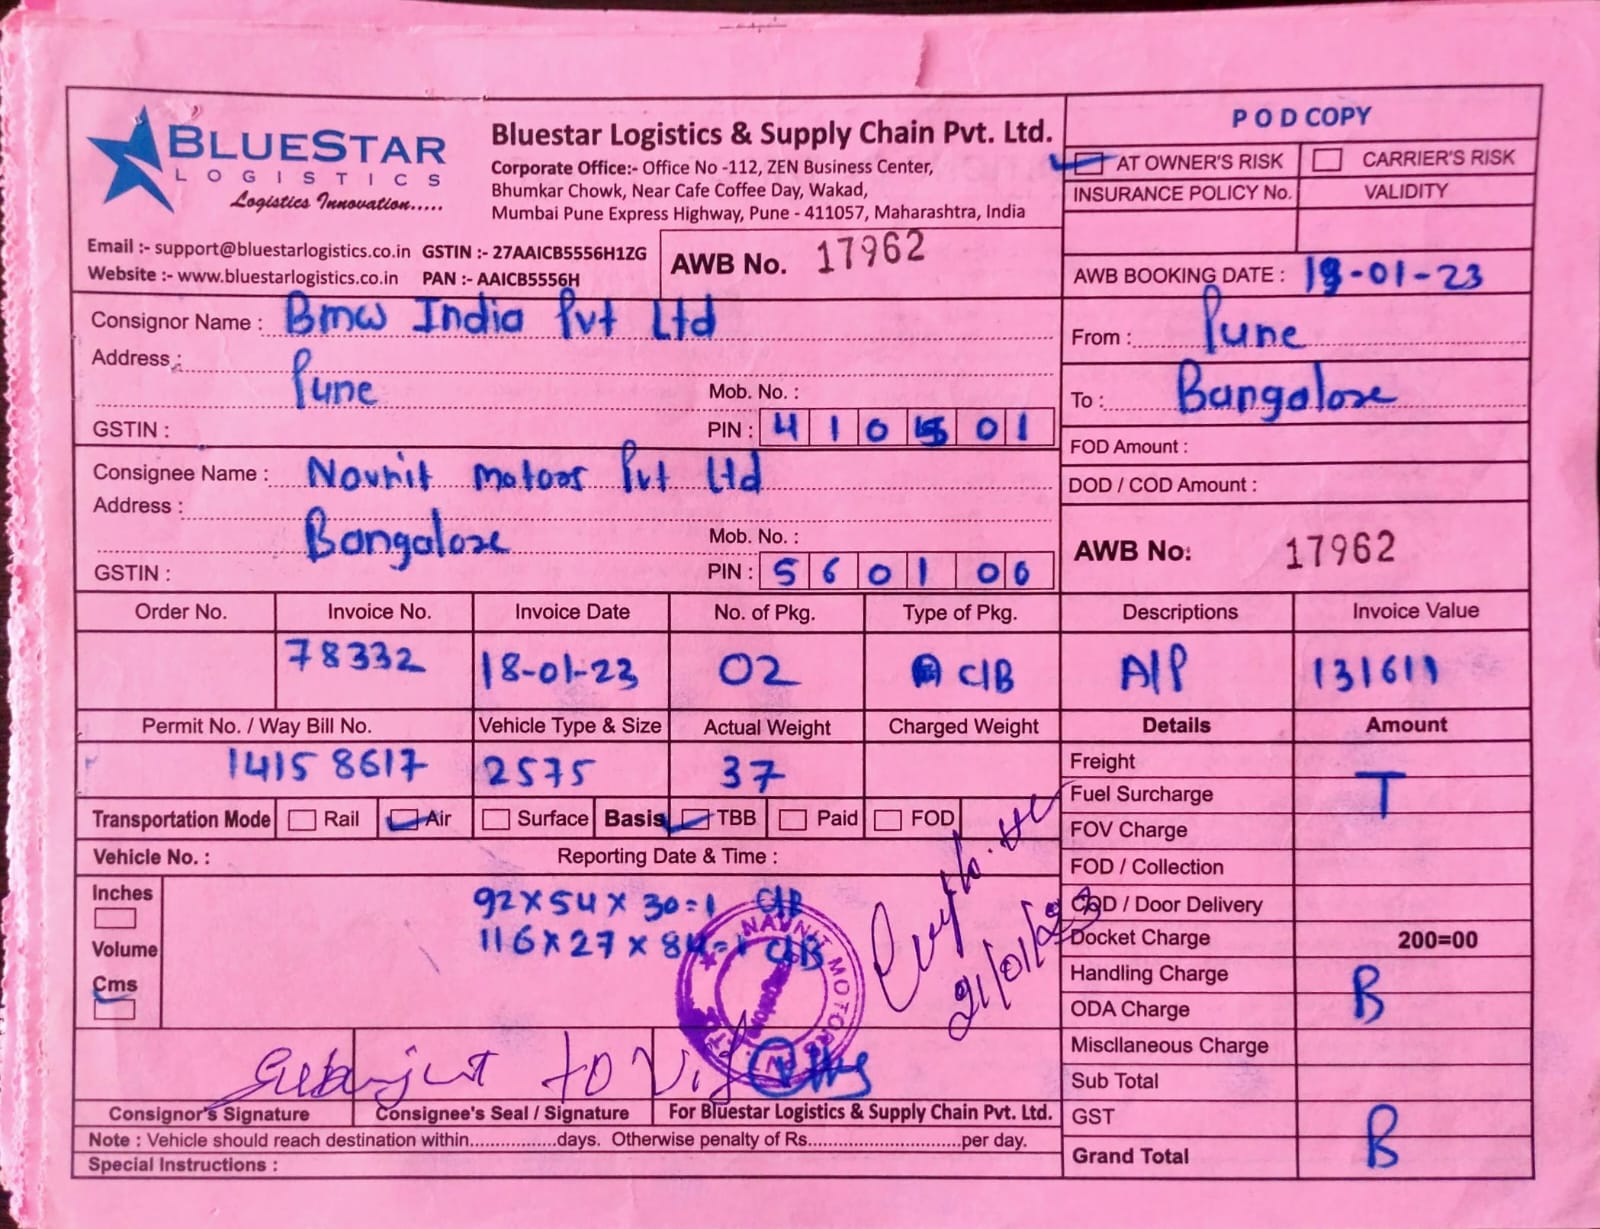 BLUESTAR
LOGISTICS
Logistics Innovation.....
Bluestar Logistics & Supply Chain Pvt. Ltd.
Corporate Office:- Office No -112, ZEN Business Center,
Bhumkar Chowk, Near Cafe Coffee Day, Wakad,
Mumbai Pune Express Highway, Pune - 411057, Maharashtra, India
Email :- support@bluestarlogistics.co.in GSTIN :- 27AAICB5556H1ZG
Website :- www.bluestarlogistics.co.in PAN :- AAICB5556H
AWB No. 17962
POD COPY
AT OWNER'S RISK CARRIER'S RISK
INSURANCE POLICY No. VALIDITY
AWB BOOKING DATE : 19-01-23
Consignor Name : Bmw India Pvt Ltd
Address :
Pune
Mob. No. :
GSTIN : PIN : 410501
From : Pune
To : Bangalore
FOD Amount :
DOD / COD Amount :
Consignee Name : Navnit motors Pvt Ltd
Address :
Bangalore
Mob. No. :
GSTIN : PIN : 560100
AWB No: 17962
Order No. Invoice No. Invoice Date No. of Pkg. Type of Pkg. Descriptions Invoice Value
78332 18-01-23 02 C/B A/P 131611
Permit No. / Way Bill No. Vehicle Type & Size Actual Weight Charged Weight Details Amount
1415 8617 2575 37
Transportation Mode Rail Air Surface Basis TBB Paid FOD
Vehicle No. : Reporting Date & Time :
Inches
Volume
Cms
92 X 54 X 30 = 1 C/B
116 X 27 X 84 = 1 C/B
NAVNIT MOTORS
21/01/23
Subject to
Consignor's Signature Consignee's Seal / Signature For Bluestar Logistics & Supply Chain Pvt. Ltd.
Note : Vehicle should reach destination within.................days. Otherwise penalty of Rs..............................per day.
Special Instructions :
Freight
T
Fuel Surcharge
FOV Charge
FOD / Collection
COD / Door Delivery
Docket Charge 200=00
Handling Charge
B
ODA Charge
Miscllaneous Charge
Sub Total
GST
B
Grand Total